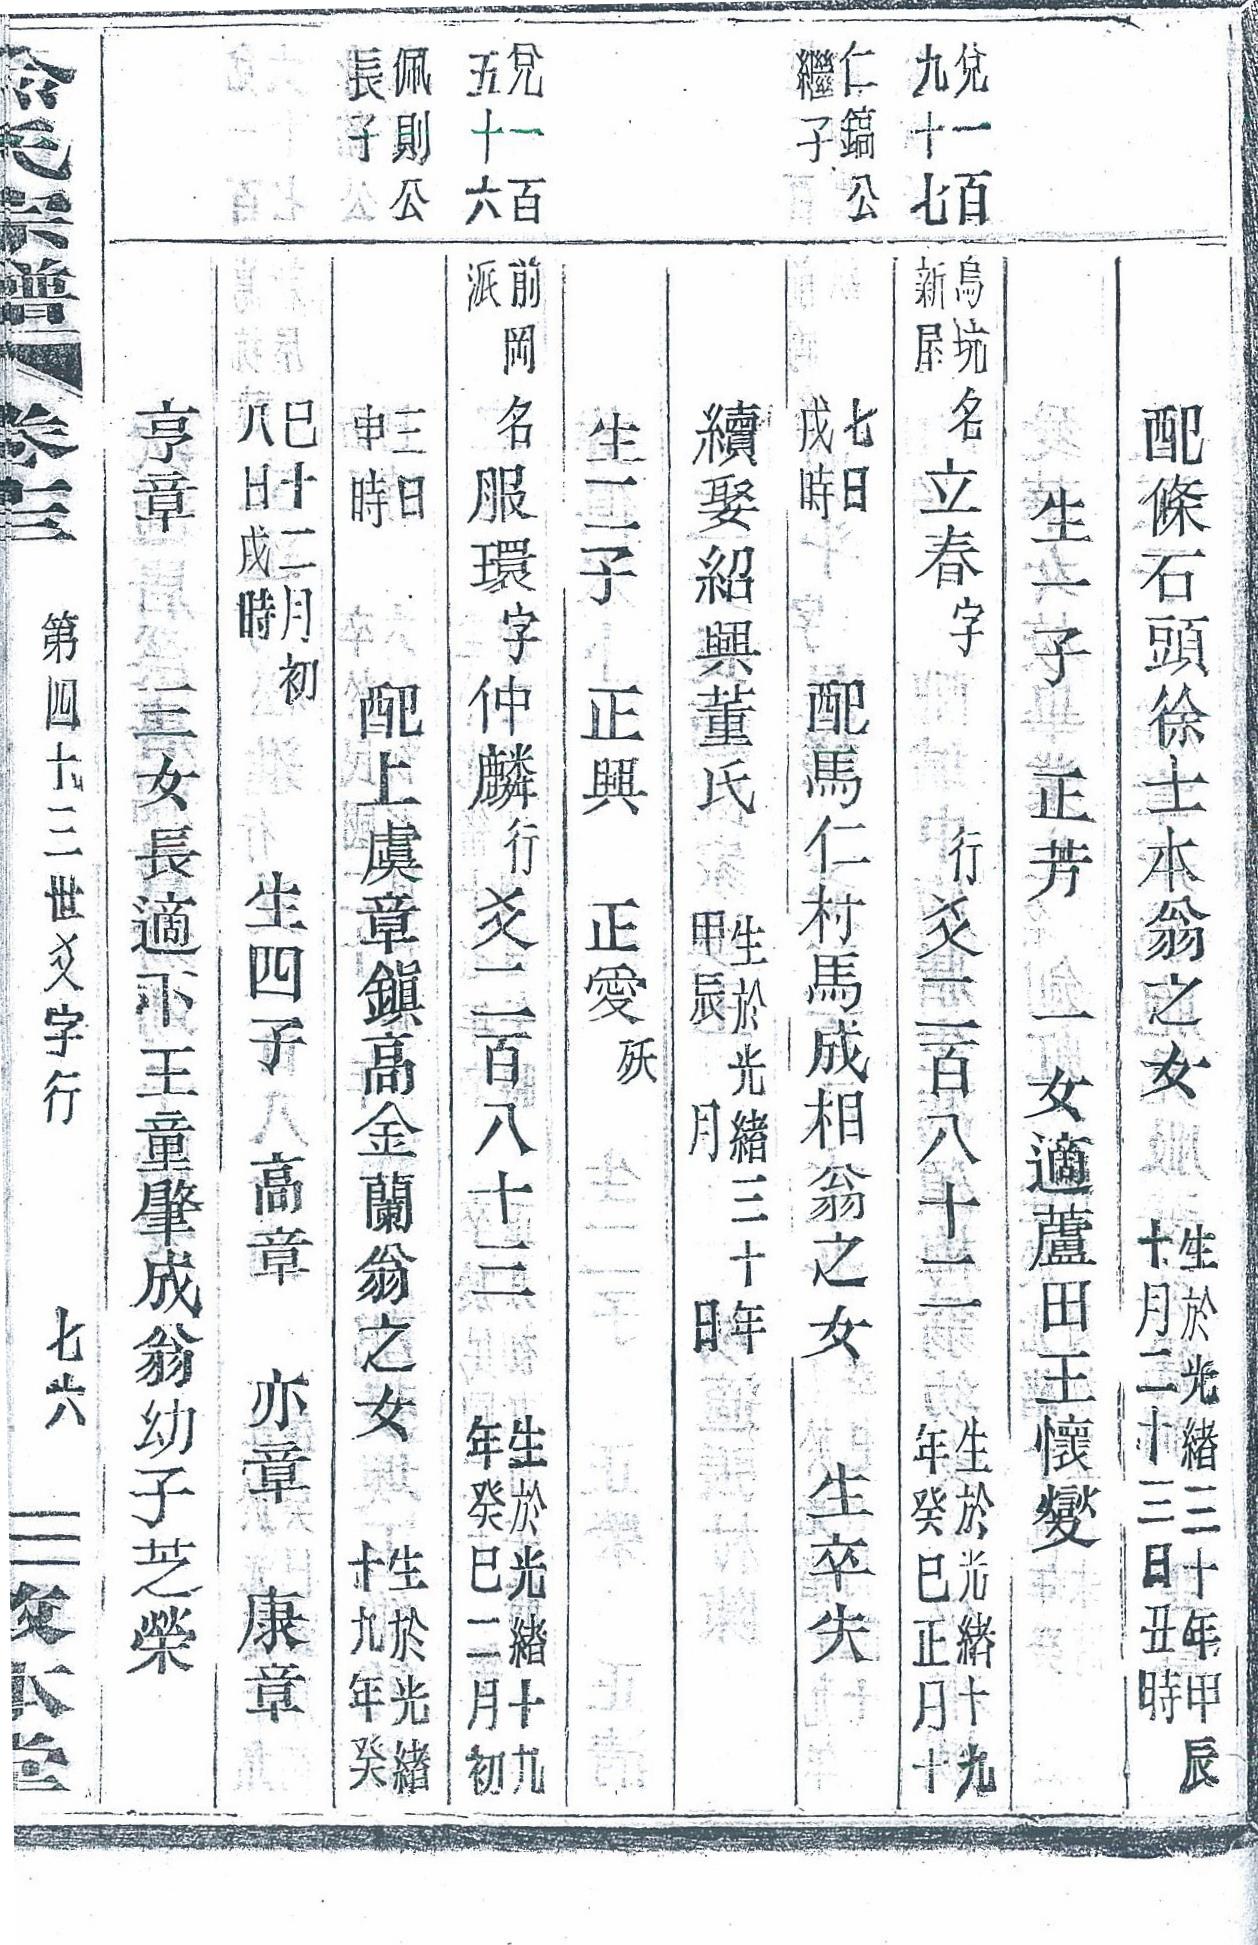 配條石頭徐士本翁之女 生於光緒三十年甲辰十月二十三日丑時
生一子 正芳 一女適蘆田王懷燮
兌一百九十七 烏坑新屋 名立春字 行爻二百八十二 生於光緒十九年癸巳正月十
仁鎬公繼子 七日戌時 配馬仁村馬成相翁之女 生卒失
續娶紹興董氏 生於光緒三十年甲辰 月 日
生二子 正興 正愛 殀
兌一百五十六 前岡派 名服環字仲麟行爻二百八十三 生於光緒十九年癸巳二月初
佩則公長子 三日申時 配上虞章鎮高金蘭翁之女 生於光緒十九年癸
巳十二月初八日戌時 生四子 高章 亦章 康章
亨章 三女長適下王童肇成翁幼子芝榮
氏宗譜 卷三 第四十三世爻字行 七六 敦本堂